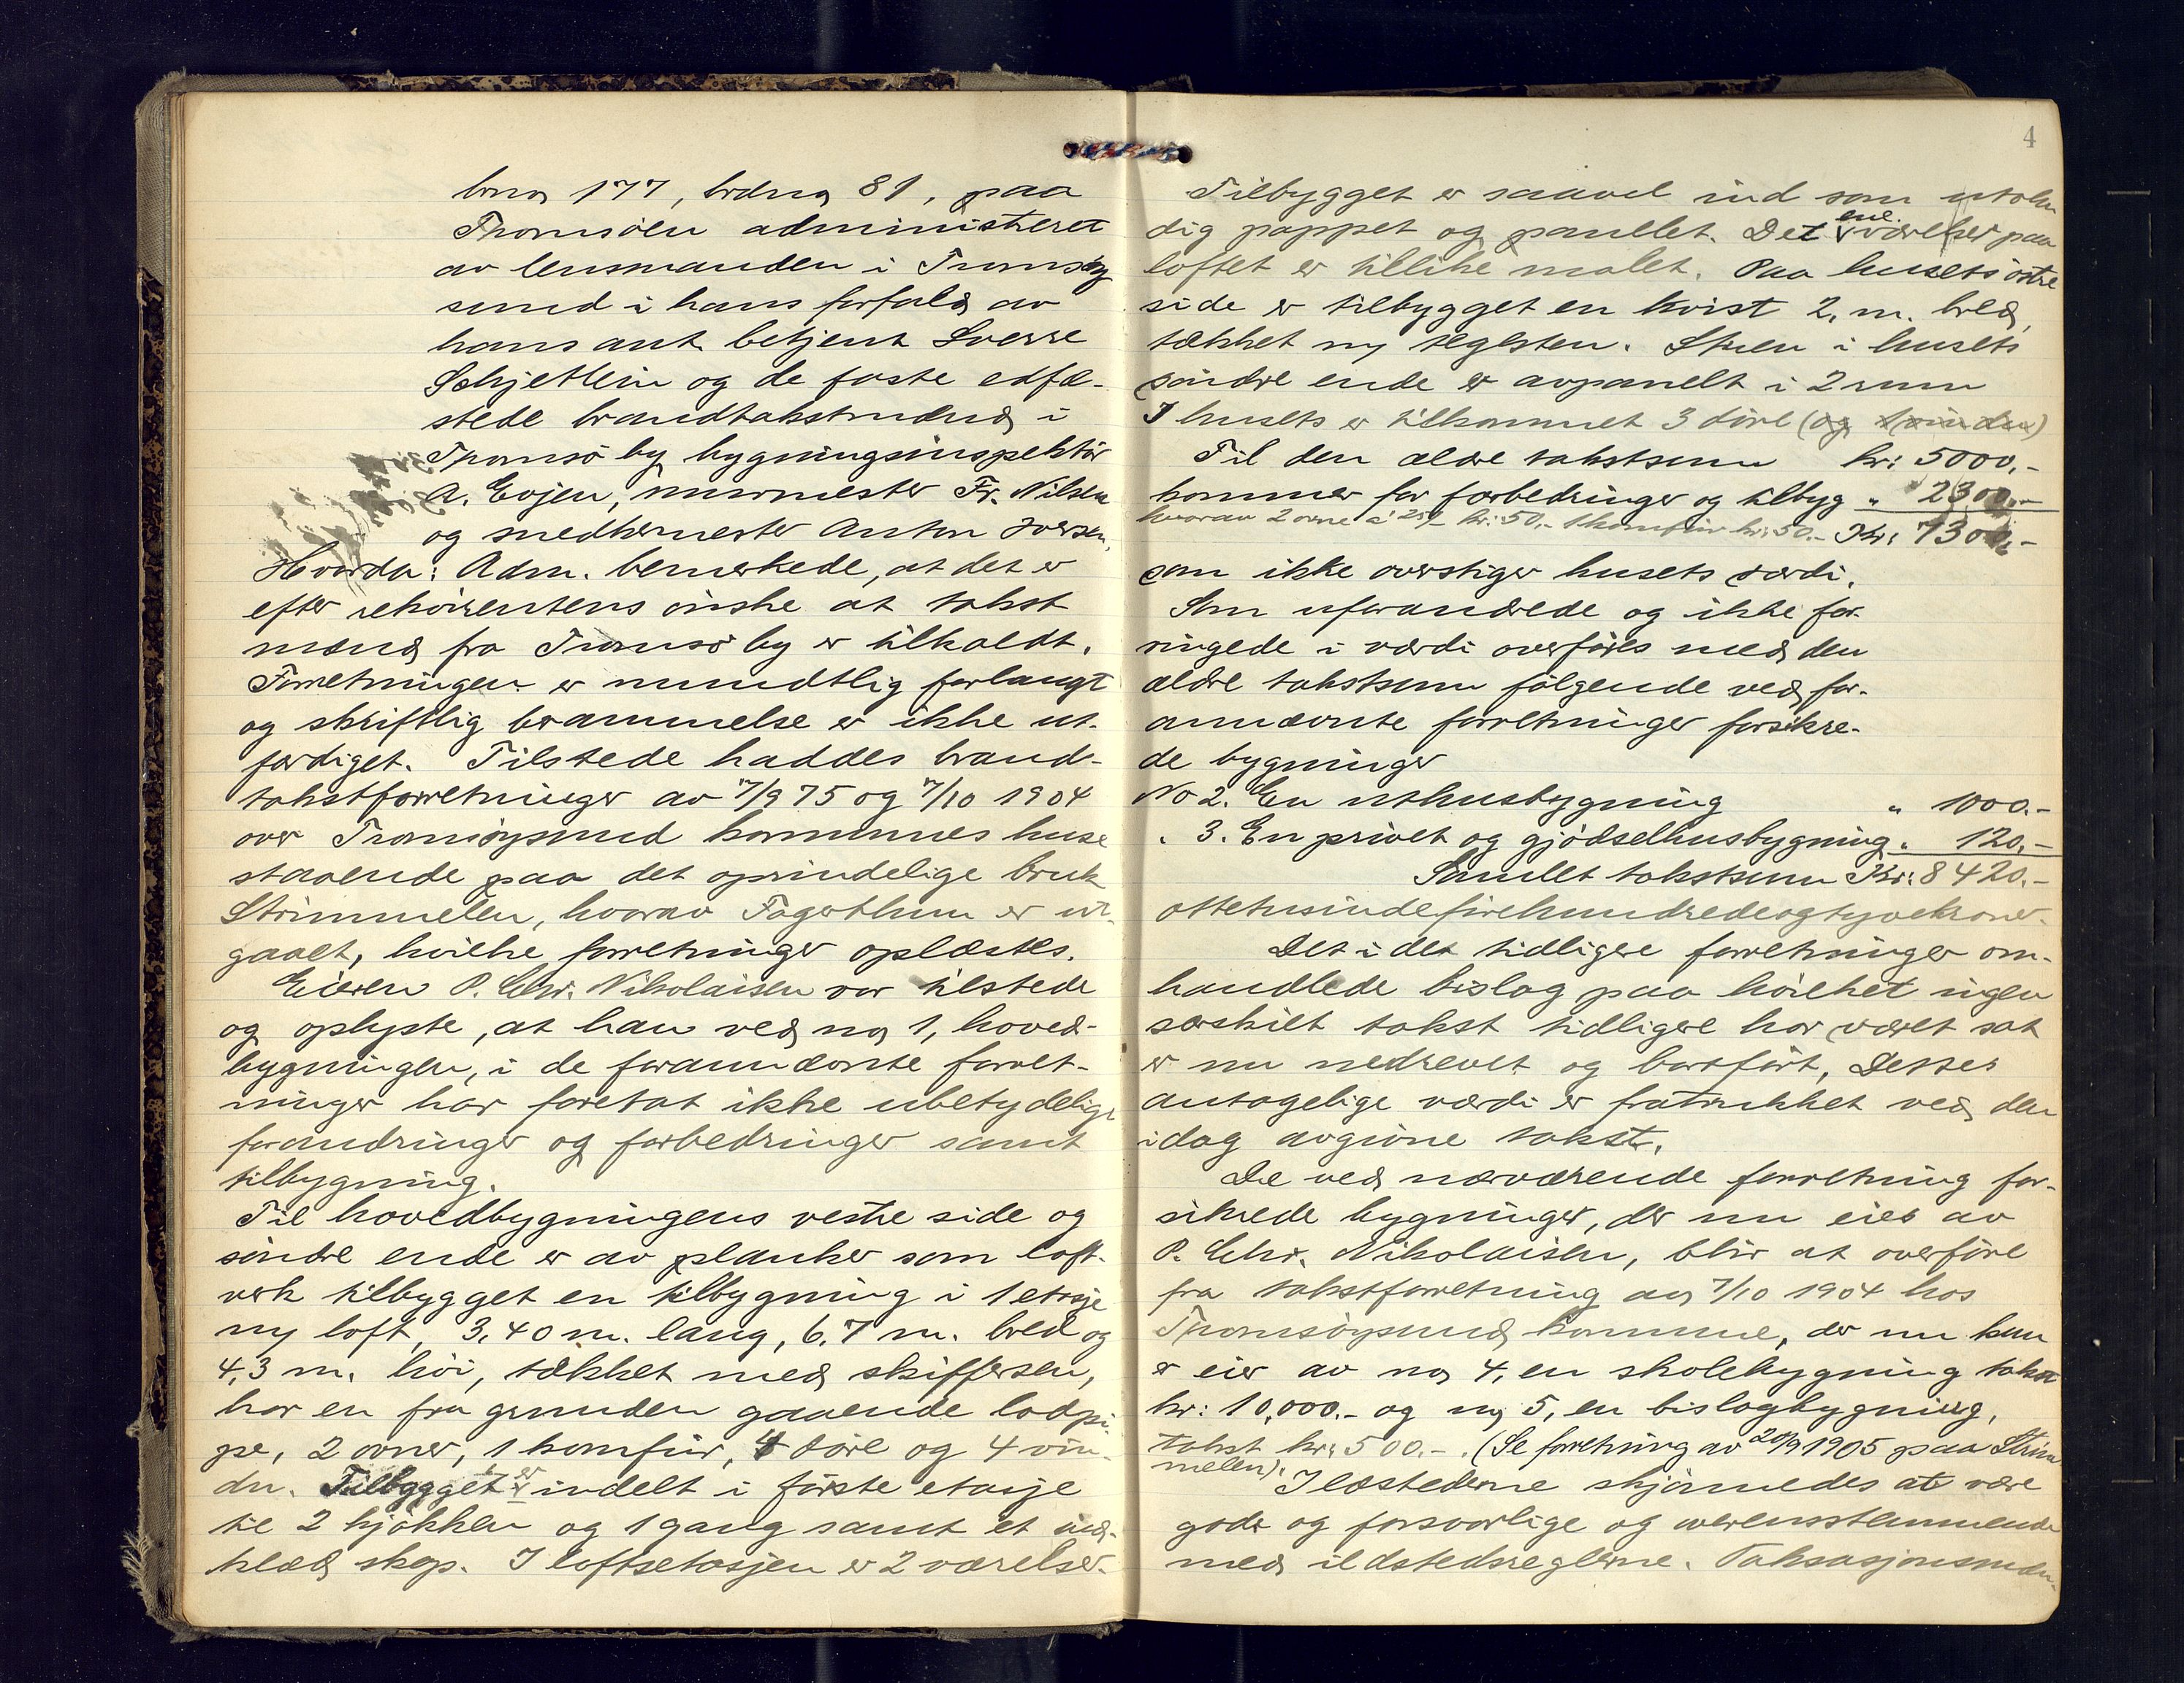 brno 177, brdno 81, paa
Tromsøen administreret
av lensmanden i Tromsøy
sund i hans forfald av
hans ant. betjent Sverre
Schjetlein og de faste edfæ-
stede brandtakstmænd i
Tromsø by bygningsinspektør
A. Evjen, murmester Fr. Nilsen
og snedkermester Anton Iversen.
Hvorda: Adm. bemerkede, at det er
efter rekvirentens ønske at takst
mænd fra Tromsø by er tilkaldt.
Forretningen er mundtlig forlangt
og skriftlig berammelse er ikke ut-
færdiget. Tilstede haddes brand-
takstforretninger av 7/9 75 og 7/10 1904
over Tromsøysund kommunes huse
staaende paa det oprindelige bruk
Strimmelen, hvorav Fagerthun er ut-
gaaet, hvilke forretninger oplæstes.
Eieren P. Chr. Nikolaisen var tilstede
og oplyste, at han ved no 1, hoved-
bygningen, i de forannævnte forret-
ninger har foretat ikke ubetydelige
forandringer og forbedringer samt
tilbygning.
Til hovedbygningens vestre side og
søndre ende er av planker som loft-
verk tilbygget en tilbygning i 1 etasje
ny loft, 3,40 m. lang, 6,7 m. bred og
4,3 m. høi, tækket med skiffersten,
har en fra grunden gaaende lodpi-
pe, 2 ovner, 1 komfür, 4 døre og 4 vin-
du. Tilbygget er indelt i første etasje
til 2 kjøkken og 1 gang samt et ind-
klæd skap. I loftsetasjen er 2 værelser.
4
Tilbygget er saavel ind som utvæn
dig pappet og panellet. Det ene værelser paa
loftet er tillike malet. Paa husets østre
side er tilbygget en kvist 2, m. bred,
tækket ny teglsten. Stuen i husets
søndre ende er avpanelt i 2 rum
I husets er tilkommet 3 døre (og 1 vindu)
Til den ældre takstsum kr: 5000,-
kommer for forbedringer og tilbyg „ 2300,-
hvorav 2 ovne a 25,- kr: 50.- 1 komfür kr: 50.- Kr: 7300,-
som ikke overstiger husets værdi.
Som uforandrede og ikke for-
ringede i værdi overføres med den
ældre takstsum følgende ved for-
annævnte forretninger forsikre-
de bygninger
No 2. En uthusbygning „ 1000.-
„ 3. En privet og gjødselhusbygning „ 120,-
Samlet takstsum Kr: 8420.-
ottetusindefirehundredeogtyvekroner.
Det i det tidligere forretninger om-
handlede bislag paa hvilket ingen
særskilt takst tidligere har været sat
er nu nedrevet og bortført, Dettes
antagelige værdi er fratrukket ved den
idag avgivne takst.
De ved nærværende forretning for-
sikrede bygninger, der nu eies av
P. Chr. Nikolaisen, blir at overføre
fra takstforretning av 7/10 1904 hos
Tromsøysund kommune, der nu kun
er eier av no 4, en skolebygning takst
kr: 10,000.- og no 5, en bislagbygning,
takst kr: 500.-. (Se forretning av 20/9 1905 paa Strim
melen).
Ildstederne skjønnedes at være
gode og forsvarlige og overensstemmende
med ildstedsreglerne. Taksasjonsmæn-